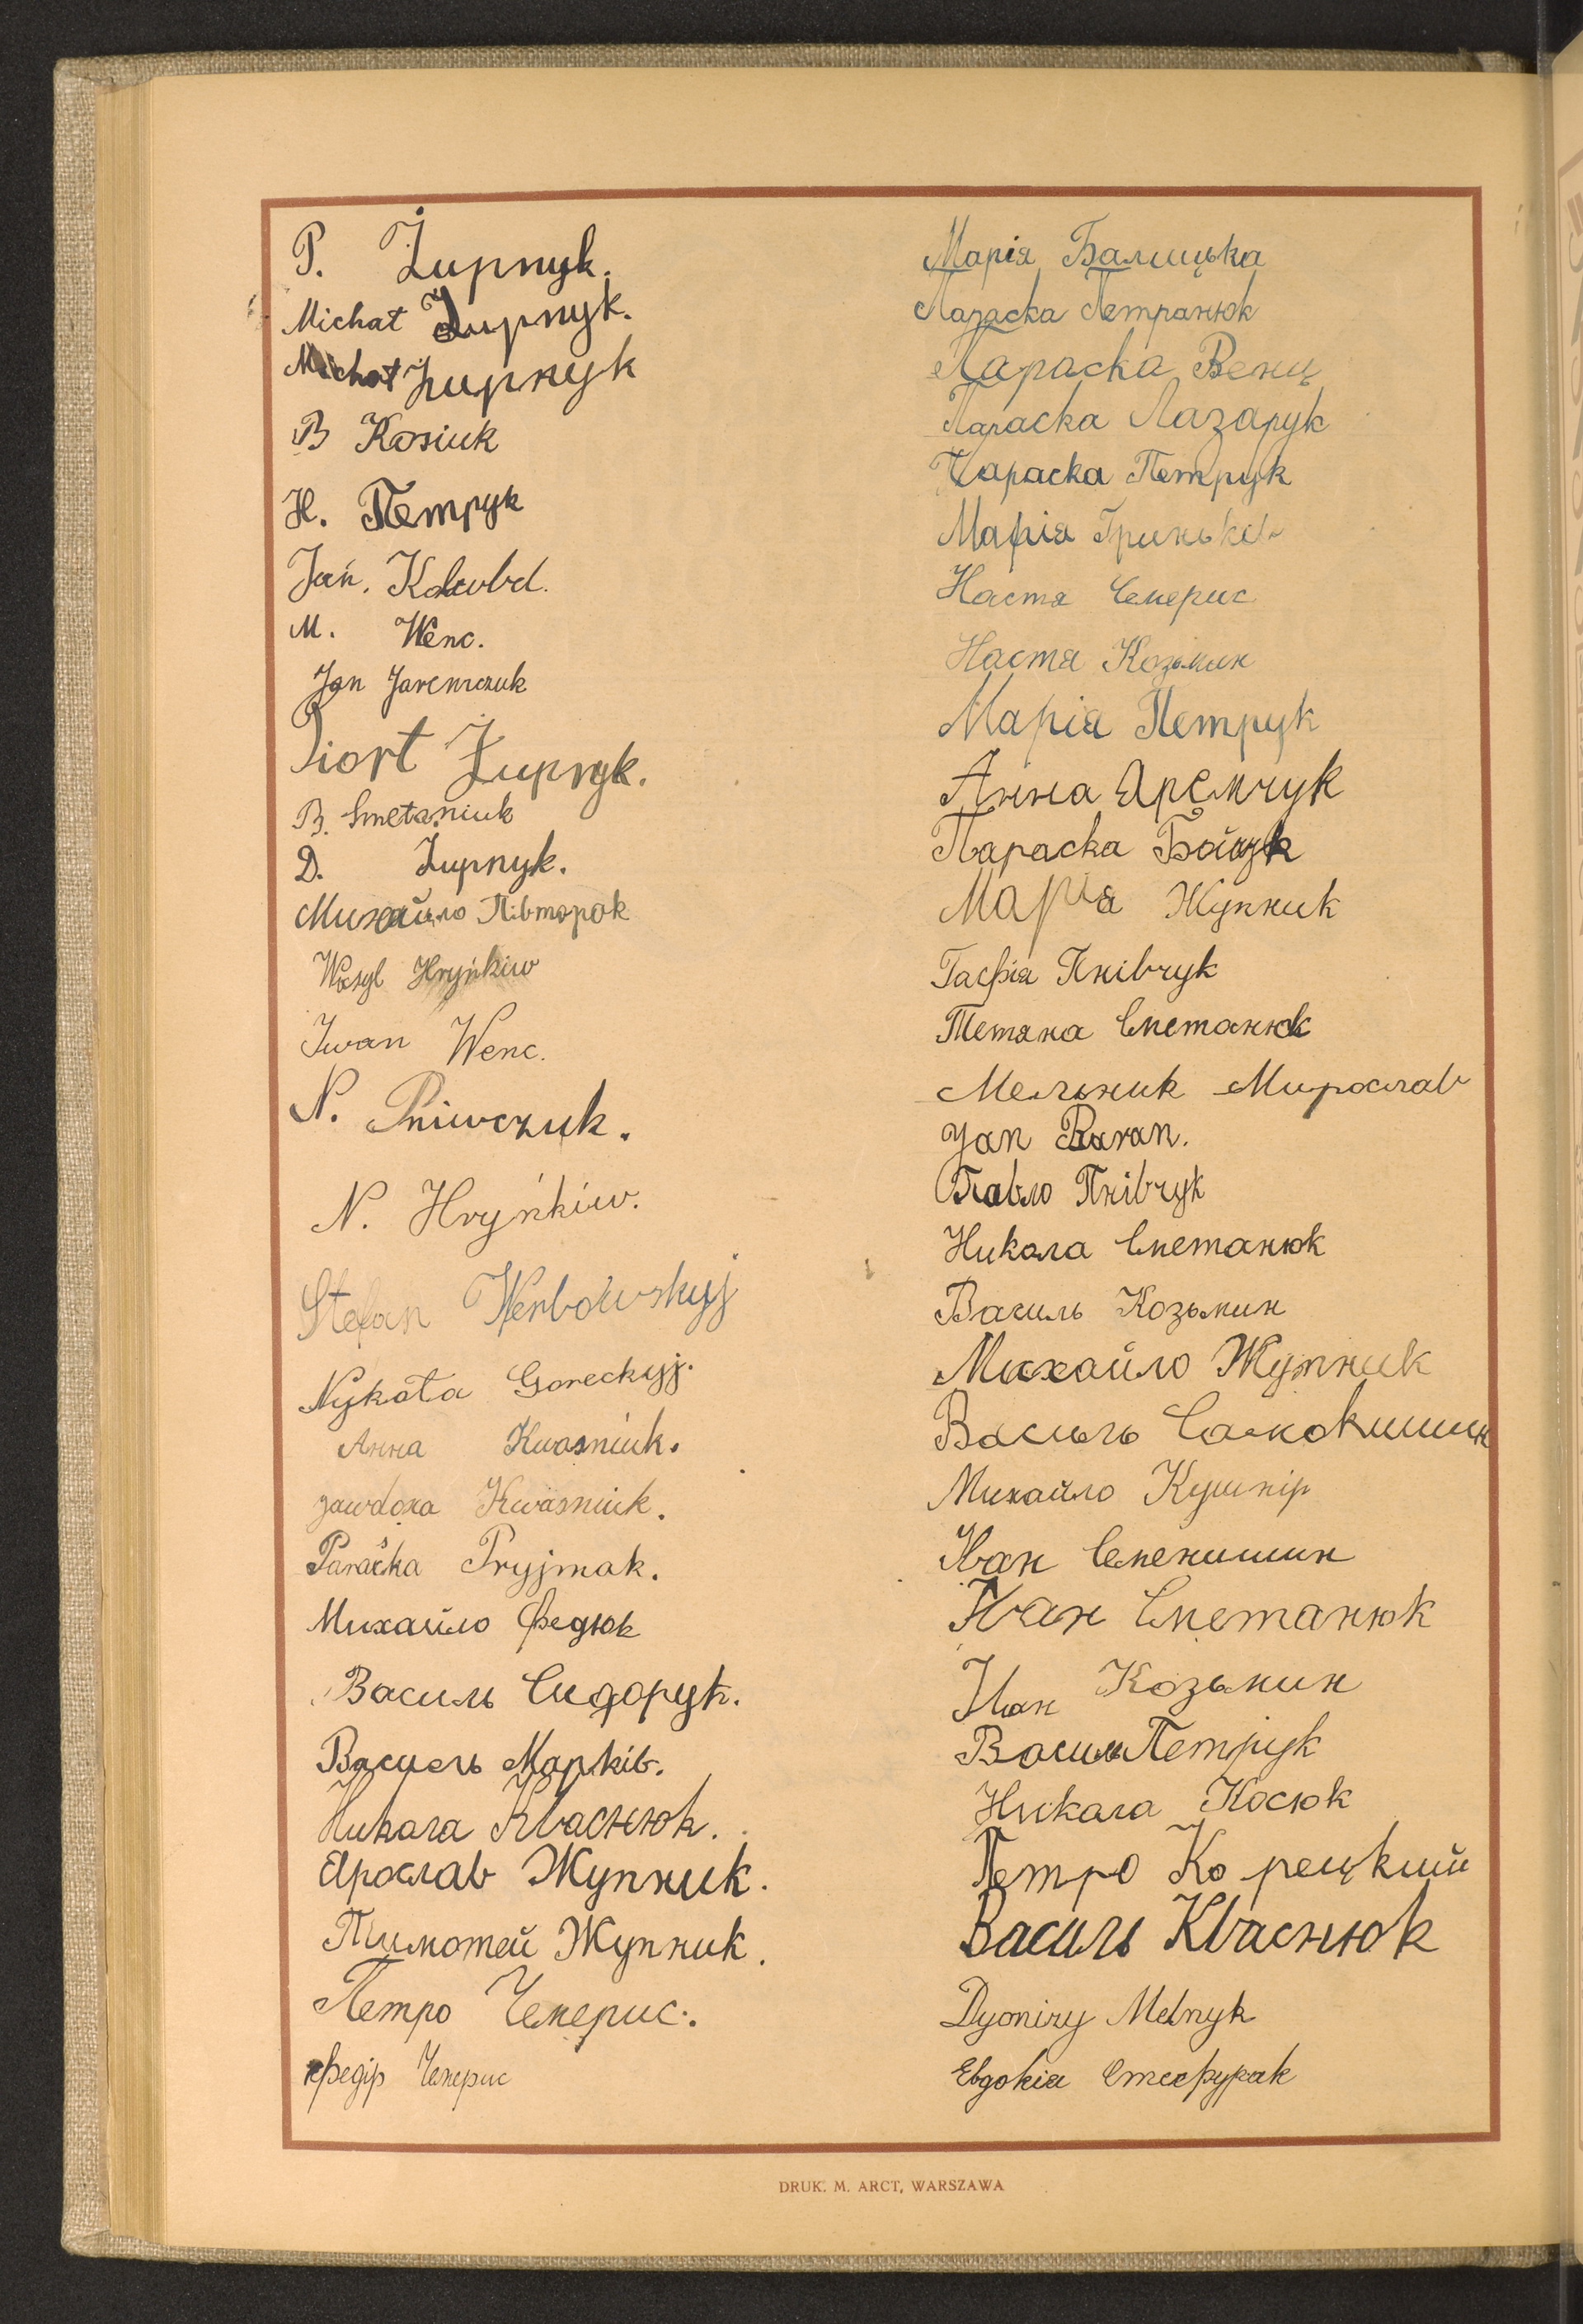 P. Żupnyk.
Michat Żupnyk.
Michat Żupnyk
B Kosiuk
Н. Петрук
Jań.
M. Wenc.
Jan Jaremczuk
Piort Żupnyk.
B. Smetaniuk
D. Żupnyk.
Михайло Півторак
Wasyl Hryńkiw
Iwan Wenc.
N. Pniwczuk.
N. Hryńkiw.
Stefan Werbowskyj
Nykoła Goreckyj.
Анна Kwasniuk.
Jawdoxa Kwasniuk.
Paraśka Pryjmak.
Михайло Федюк
Василь Сидорук.
Василь Марків.
Никола Квасн​юк.
Ярослав Жупник.
Тимотей Жупник.
Петро Чемерис.
Федір Чемерис
Марія Балицька
Параска Петранюк
Параска Венц
Параска Лазарук
Параска Петрук
Марія Гриньків
Настя Семерис
Настя Козьмин
Марія Петрук
Анна Яремчук
Параска Бойчук
Марія Жупник
Гафія Пнівчук
Тетяна Сметанюк
Мельник Мирослав
Jan Baran.
Павло Пнівчук
Никола Сметанюк
Василь Козьмин
Михайло Жупник
Василь
Михайло Кушнір
Іван Семенишин
Іван Сметанюк
Іван Козьмин
Василь Петрук
Никола Косюк
Петро Ко рецький
Василь Кваснюк
Dyonizy Melnyk
Евдокія Стефурак
DRUK. M. ARCT, WARSZAWA